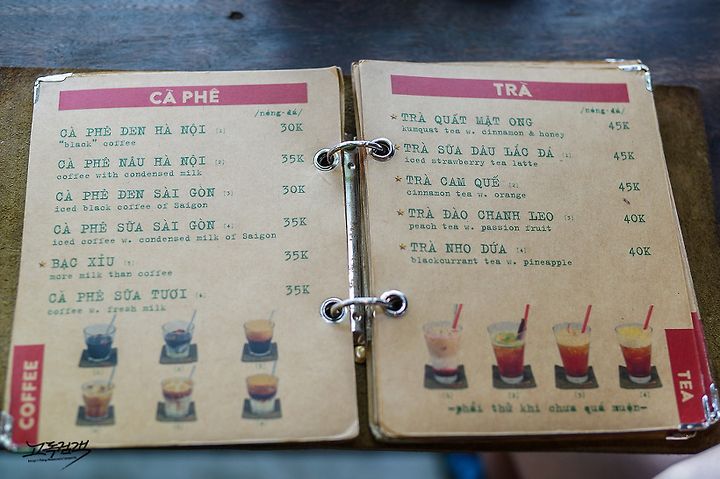 CÀ PHÊ
/nóng-đá/
CÀ PHÊ ĐEN HÀ NỘI [1] 30K
"black" coffee
CÀ PHÊ NÂU HÀ NỘI [2] 35K
coffee with condensed milk
CÀ PHÊ ĐEN SÀI GÒN [3] 30K
iced black coffee of Saigon
CÀ PHÊ SỮA SÀI GÒN [4] 35K
iced coffee w. condensed milk of Saigon
BẠC XỈU [5] 35K
more milk than coffee
CÀ PHÊ SỮA TƯƠI [6] 35K
coffee w. fresh milk
COFFEE
TRÀ
/nóng-đá/
TRÀ QUẤT MẬT ONG 45K
kumquat tea w. cinnamon & honey
TRÀ SỮA DÂU LẮC ĐÁ [1] 45K
iced strawberry tea latte
TRÀ CAM QUẾ [2] 45K
cinnamon tea w. orange
TRÀ ĐÀO CHANH LEO [3] 40K
peach tea w. passion fruit
TRÀ NHO DỨA [4] 40K
blackcurrant tea w. pineapple
[1] [2] [3] [4]
-phải thử khi chưa quá muộn-
TEA